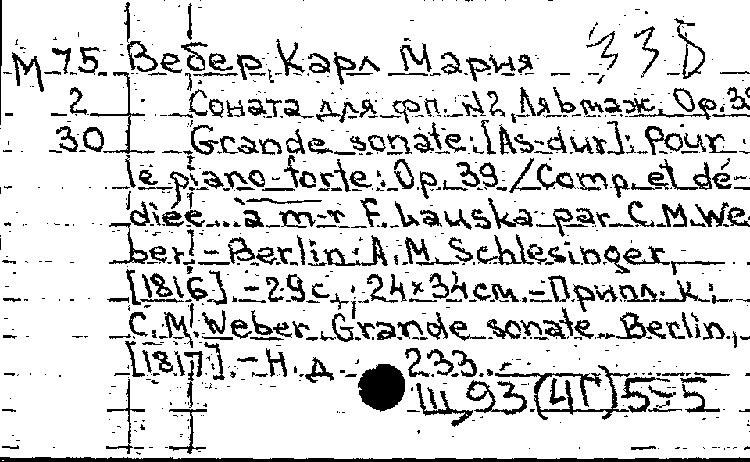 М 75 Вебер, Карл Мария 33Б
2 Соната для фп. №2, Ля ь маж. Ор. 39
30 Grande sonate: [As-dur]: Pour
le piano-forte: Op. 39 / Comp. et dé-
diée... à m-r F. Lauska par C. M. We-
ber. - Berlin: A. M. Schlesinger,
[1816]. - 29 с.; 24×34 см. - Припл. к:
C. M. Weber. Grande sonate... Berlin,
[1817]. - Н. д. : 233.
Ш, 93 (4Г) 5-5